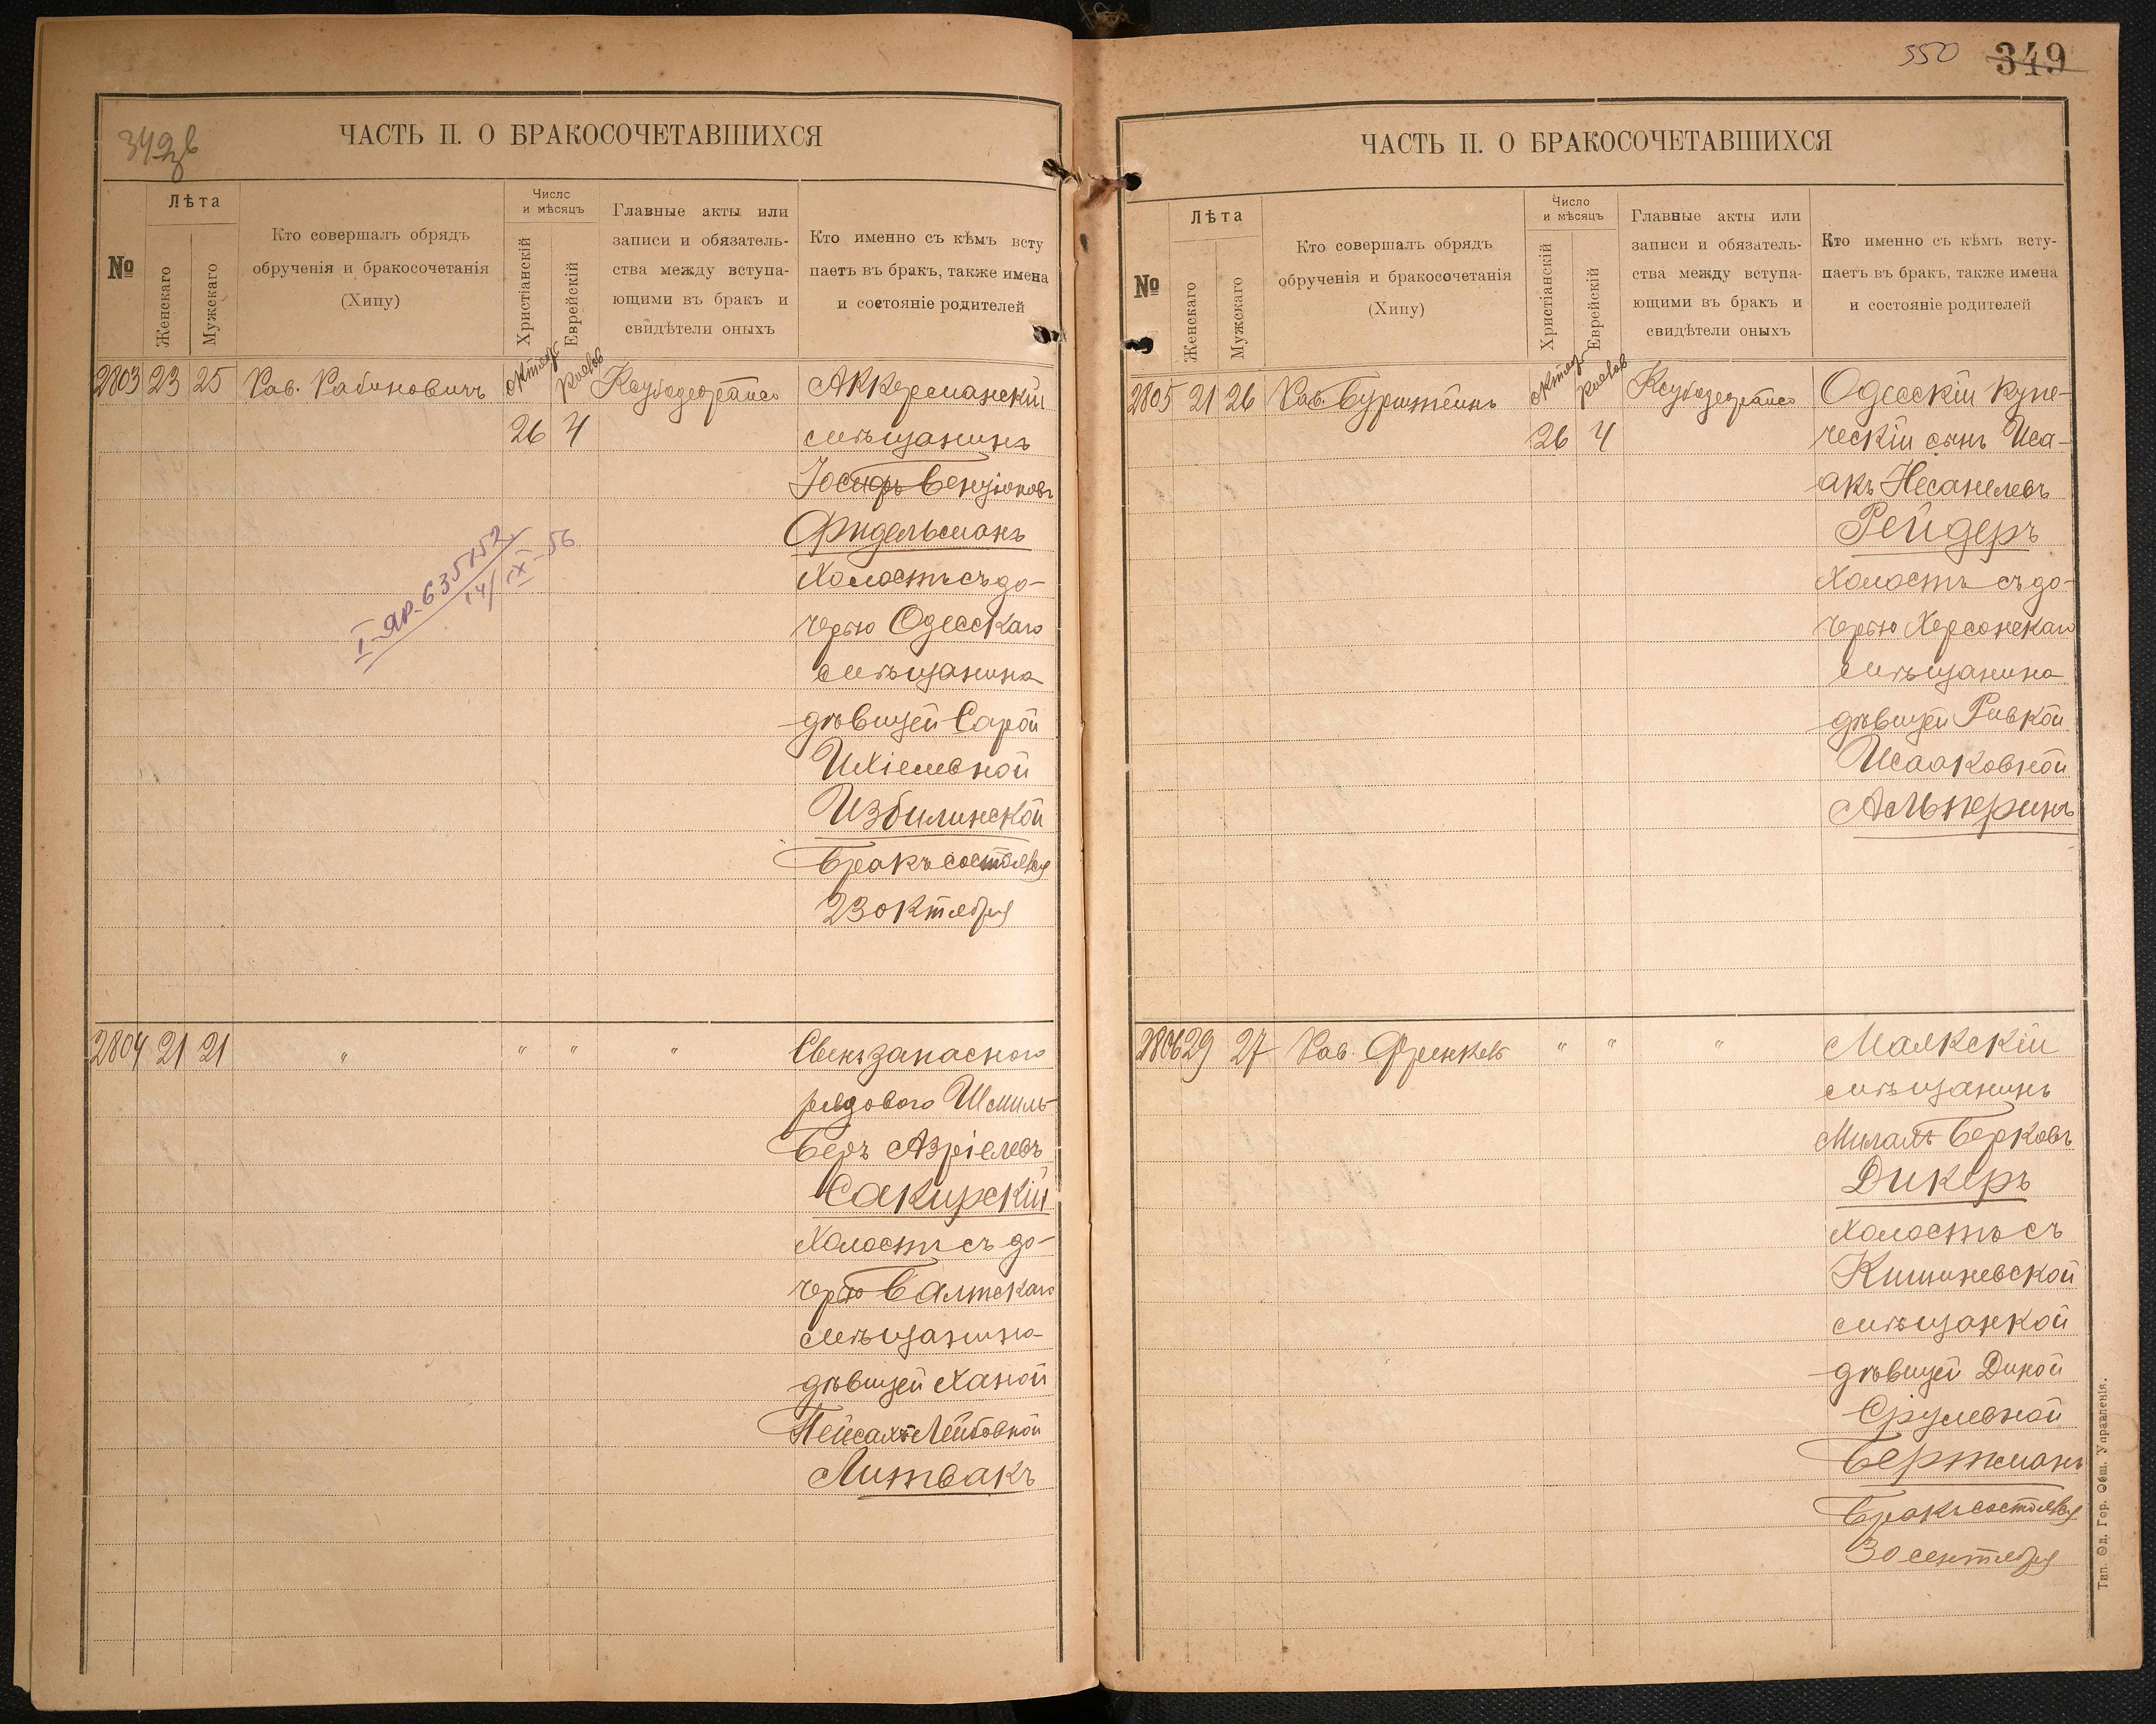 349 зв
ЧАСТЬ II. О БРАКОСОЧЕТАВШИХСЯ
№
Лѣта
Женскаго
Мужскаго
Кто совершалъ обрядъ
обрученія и бракосочетанія
(Хипу)
Число
и мѣсяцъ
Христіанскій
Еврейскій
Главные акты или
записи и обязатель-
ства между вступа-
ющими въ бракъ и
свидѣтели оныхъ
Кто именно съ кѣмъ всту
паетъ въ бракъ, также имена
и состояніе родителей
2803 23 25 Рав. Рабиновичъ
26 4
Аккерманскій
мѣщанинъ
Іосифъ Бенціоновъ
Фидельманъ
холостъ съ до-
черью Одесскаго
мѣщанина
дѣвицей Сарой
Ихіелевной
Избилинской
Бракъ состоялся
23 октября
I-яр. 635152
14/IX-56
2804 21 21 " " " "
Сынъ запаснаго
рядового Шмиль-
Беръ Азріелевъ
Сакирскій
холостъ съ до-
черью Балтскаго
мѣщанина
дѣвицей Ханой
Пейсахъ-Лейбовной
Литвакъ
350 349
ЧАСТЬ II. О БРАКОСОЧЕТАВШИХСЯ
№
Лѣта
Женскаго
Мужскаго
Кто совершалъ обрядъ
обрученія и бракосочетанія
(Хипу)
Число
и мѣсяцъ
Христіанскій
Еврейскій
Главные акты или
записи и обязатель-
ства между вступа-
ющими въ бракъ и
свидѣтели оныхъ
Кто именно съ кѣмъ всту-
паетъ въ бракъ, также имена
и состояніе родителей
2805 21 26 Рав. Бурштейнъ
26 4
Одесскій купе-
ческій сынъ Иса-
акъ Несанелевъ
Рейдеръ
холостъ съ до-
черью Херсонскаго
мѣщанина
дѣвицей Ривкой
Исааковной
Альперинъ
2806 29 27 Рав. Френкель " " "
Маякскій
мѣщанинъ
Берковъ
Дикеръ
холостъ съ
Кишиневской
мѣщанкой
дѣвицей Диной
Срулевной
Бертманъ
Бракъ состоялся
30 сентября
Тип. Од. Гор. Общ. Управленія.